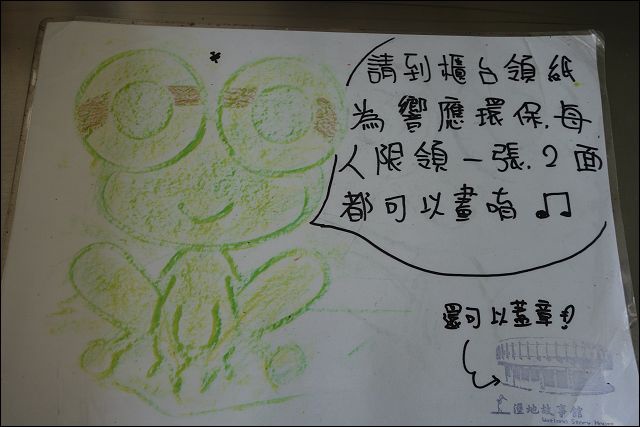 請到櫃台領紙
為響應環保.每
人限領一張.2面
都可以畫唷♫
還可以蓋章!
濕地故事館
Wetland Story House